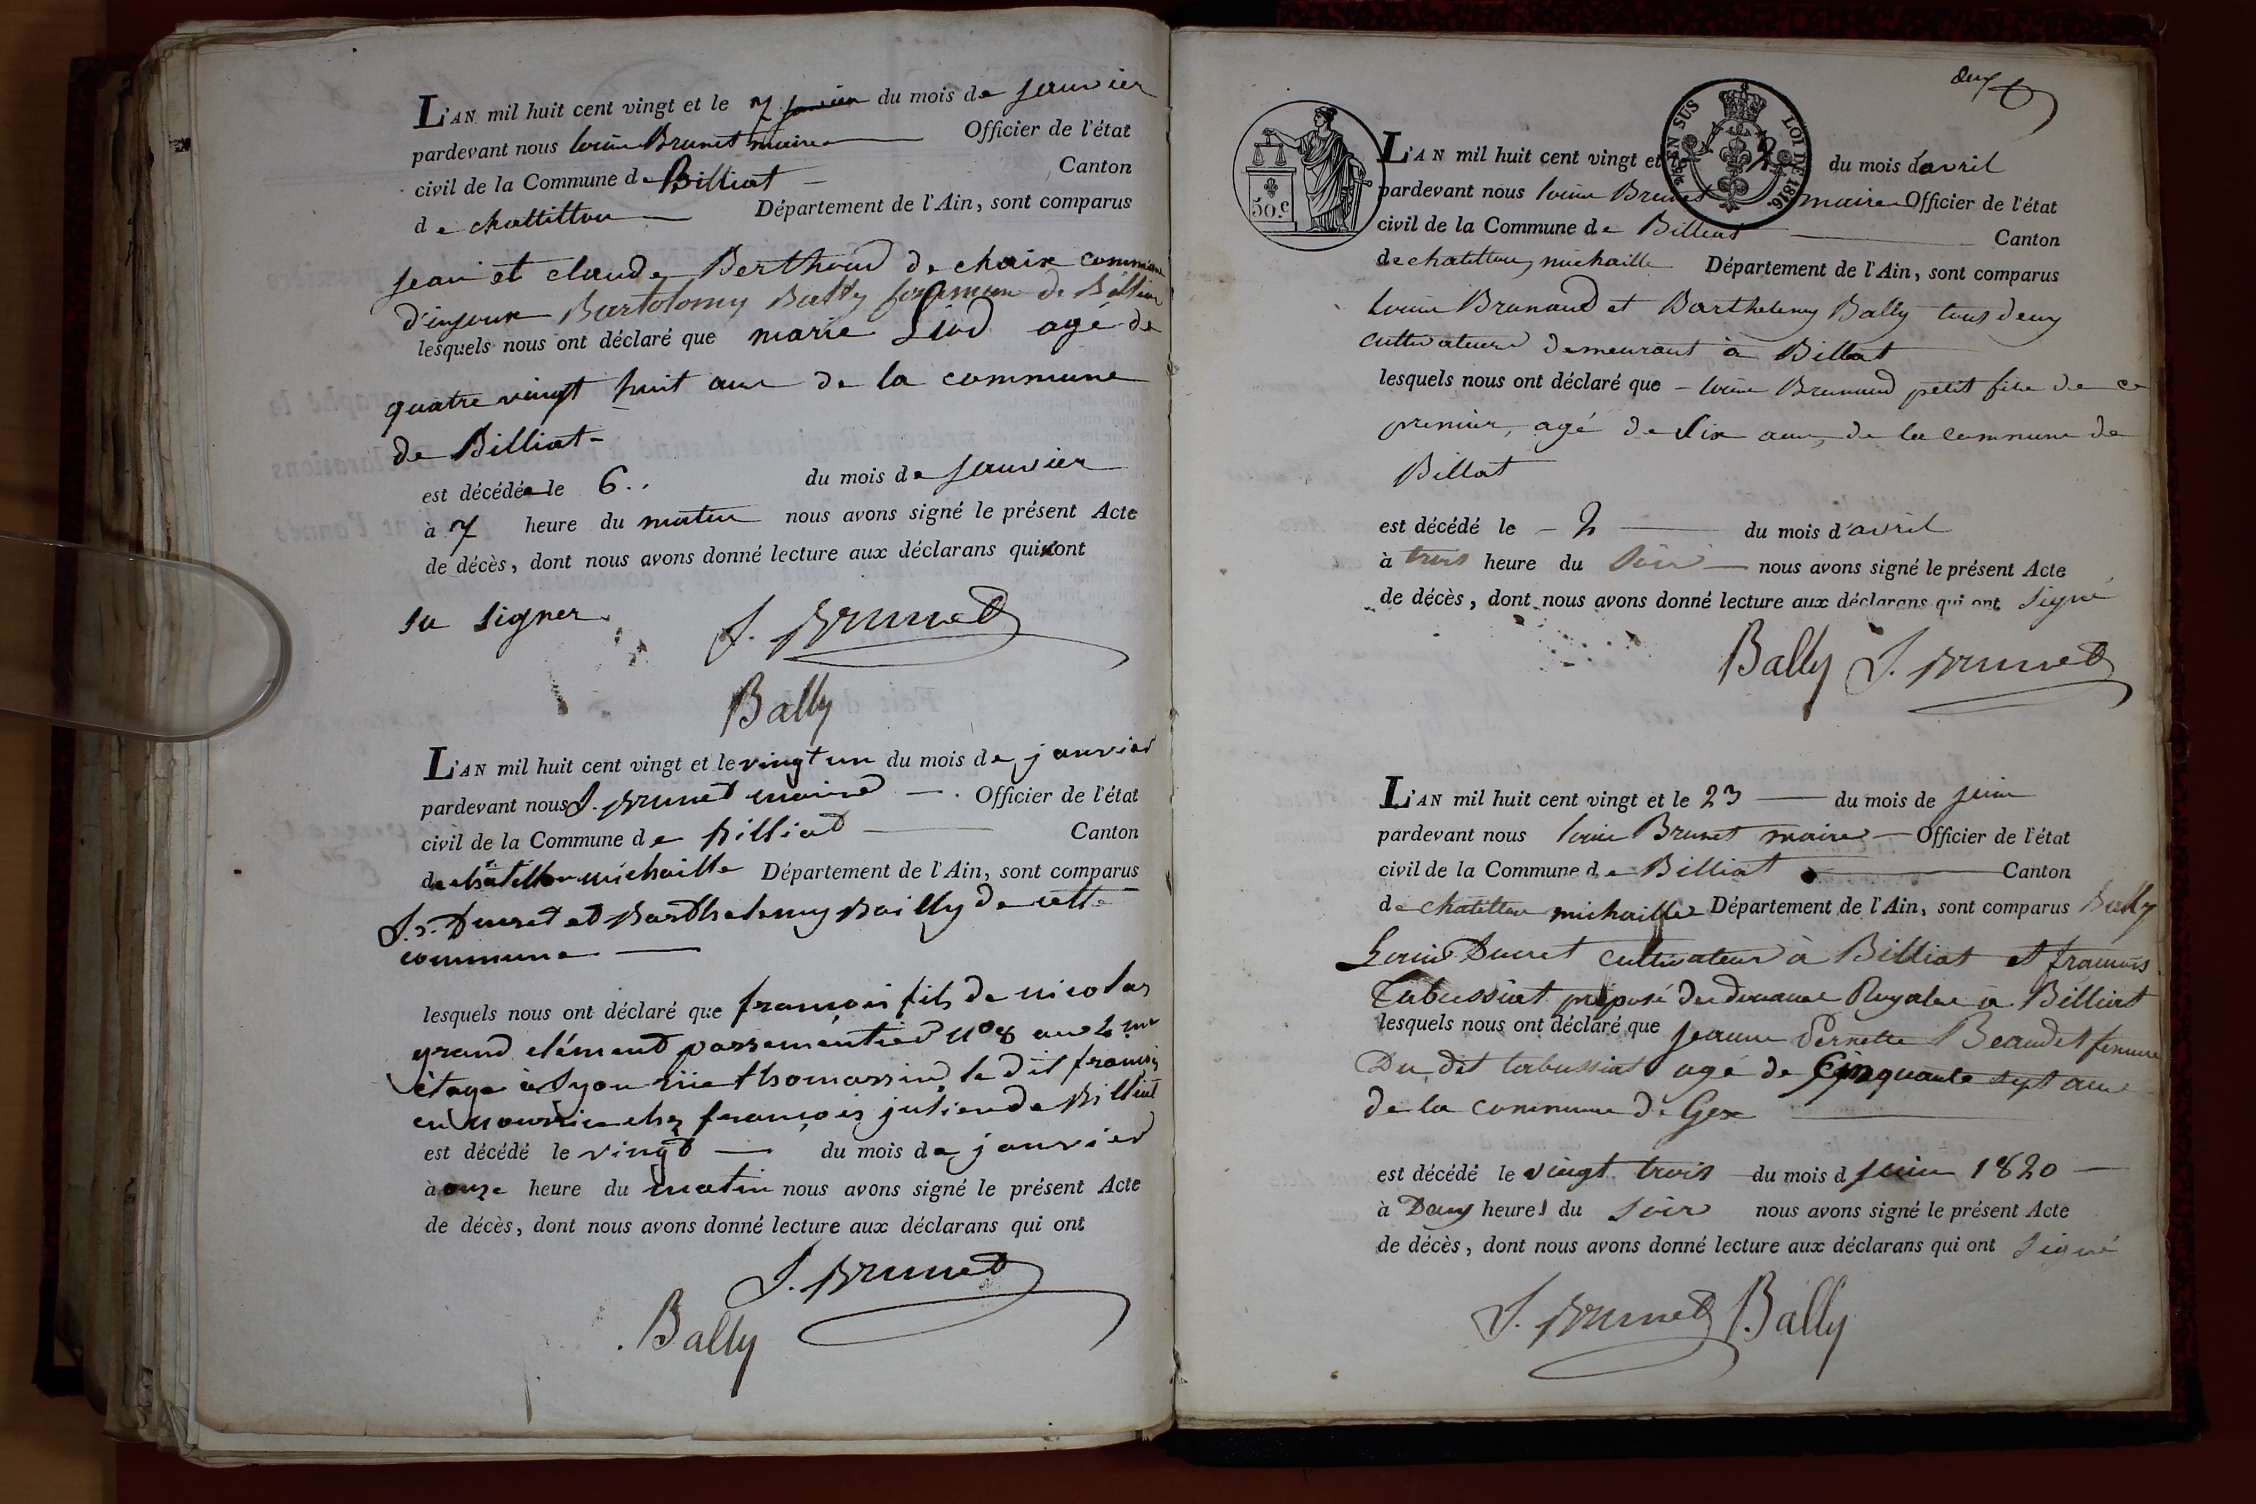 L'AN mil huit cent vingt et le 7 janvier du mois de janvier
pardevant nous louis Brunet maire Officier de l'état
civil de la Commune de Billiat Canton
de chattillon Département de l'Ain, sont comparus
jean et claude Berthoud de chaix commune
d'injoux Bartolomy Bally commune de Billiat
lesquels nous ont déclaré que marie agé de
quatre vingt huit ans de la commune
de Billiat
est décédée le 6.. du mois de janvier
à 7 heure du matin nous avons signé le présent Acte
de décès, dont nous avons donné lecture aux déclarans qui ont
su signer.
J. Brunet
Bally
L'AN mil huit cent vingt et le vingt un du mois de janvier
pardevant nous J. Brunet maire Officier de l'état
civil de la Commune de Billiat Canton
de châtillon michaille Département de l'Ain, sont comparus
Ducret et Barthelemy Bailly de cette
commune
lesquels nous ont déclaré que françois fils de nicolas
grand clément passementier n° 8 au 2me
étage à Lyon rüe thomassin, le dit françois
en nourrice chez françois julien de Billiat
est décédé le vingt du mois de janvier
à onze heure du matin nous avons signé le présent Acte
de décès, dont nous avons donné lecture aux déclarans qui ont
J. Brunet
Bally
deux
50.c
EN SUS
LOI DE 1816.
L'AN mil huit cent vingt et le 2 du mois d'avril
pardevant nous louis Brunet maire Officier de l'état
civil de la Commune de Billiat Canton
de chatillon michaille Département de l'Ain, sont comparus
louis Brunaud et Barthelemy Bally tous deux
cultivateurs demeurant à Billat
lesquels nous ont déclaré que louis Brunaud petit fils de ce
premier, agé de six ans, de la commune de
Billat
est décédé le 2 du mois d'avril
à trois heure du soir nous avons signé le présent Acte
de décès, dont nous avons donné lecture aux déclarans qui ont signé
Bally J. Brunet
L'AN mil huit cent vingt et le 23 du mois de juin
pardevant nous louis Brunet maire Officier de l'état
civil de la Commune de Billiat Canton
de chatillon michaille Département de l'Ain, sont comparus Bally
Louis Ducret cultivateur à Billiat et francois
Tabussiat préposé des douanes Royales à Billiat
lesquels nous ont déclaré que jeanne Pernette Beaudet femme
Du dit tabussiat agé de Cinquante sept ans
de la commune de Gex
est décédé le vingt trois du mois d juin 1820
à Deux heures du soir nous avons signé le présent Acte
de décès, dont nous avons donné lecture aux déclarans qui ont signé
J. Brunet Bally